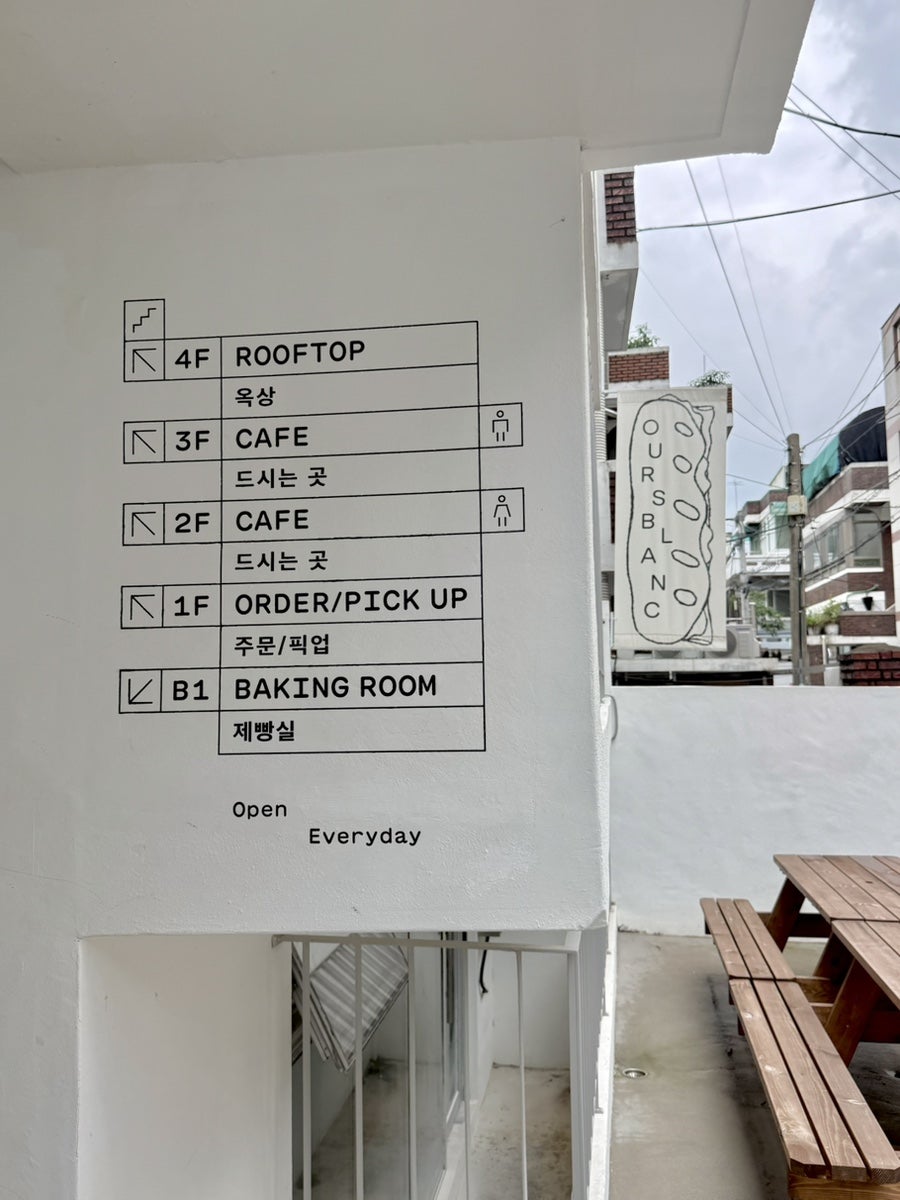 4F ROOFTOP
옥상
3F CAFE
드시는 곳
2F CAFE
드시는 곳
1F ORDER/PICK UP
주문/픽업
B1 BAKING ROOM
제빵실
Open
Everyday
OURS
BLANC